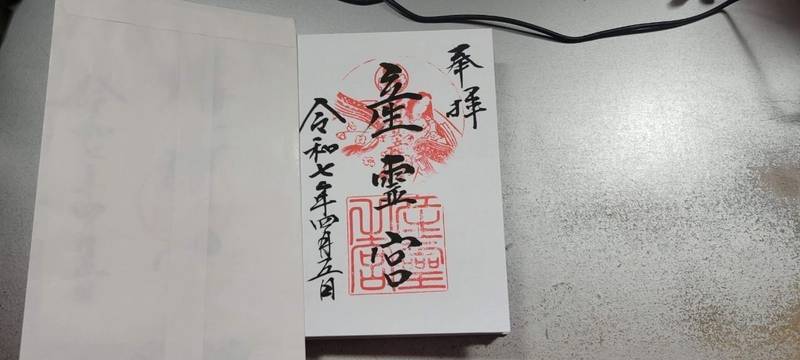 奉拝
産霊宮
令和七年四月五日